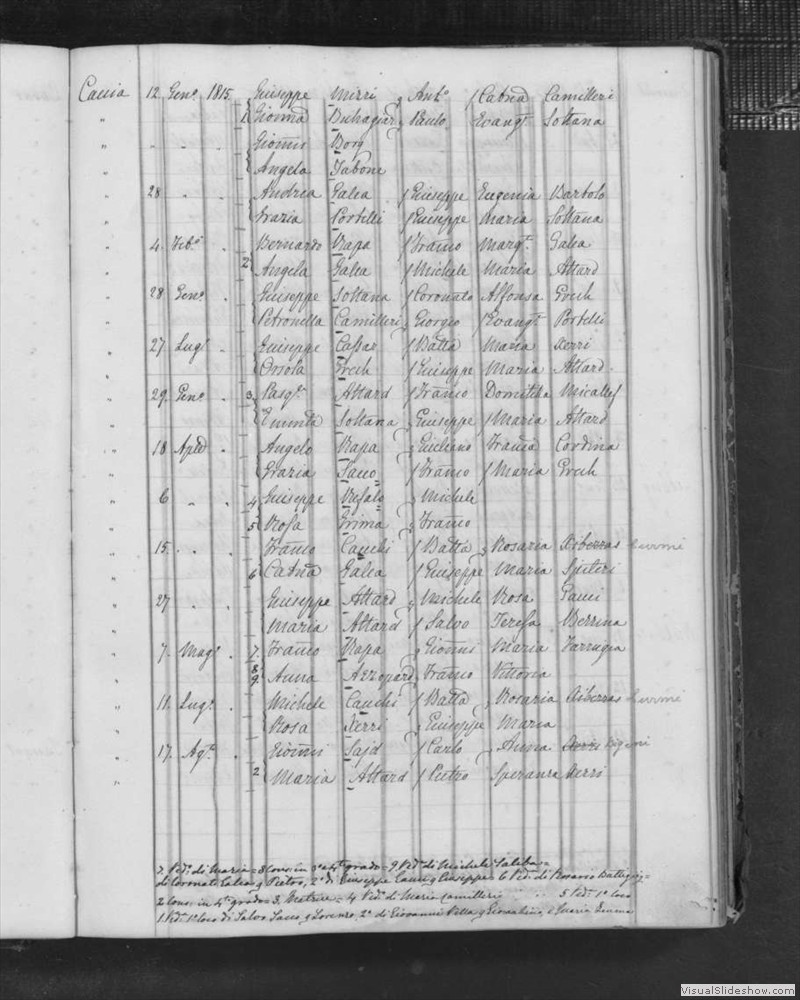 Caccia 12 Gen.o 1815. Giuseppe Mizzi q Ant.o f Catnã Camilleri
1 Gionnã Buhagiar q Paulo Evang.ta Soltana
" " " Gioñis Borg
" Angela Tabone
" 28 " Andrea Galea f Giuseppe Eugenia Bartolo
" Grazia Portelli f Giuseppe Maria Soltana
" 4 Feb.o Bernardo Rapa f Franco Marg.ta Galea
" 2 Angela Galea f Michele Maria Attard
" 28 Gen.o Giuseppe Soltana f Coronato Alfonsa Grech
" Petronella Camilleri q Giorgio f Evang.ta Portelli
" 27 Lug.o Giuseppe Cassar f Batta Maria Xerri
" Orsola Grech f Giuseppe Maria Attard
" 29. Gen.o 3 Pasq.e Attard f Franco Domitilla Micallef
" Soltana q Giuseppe f Maria Attard
" 18 Aple Angelo Rapa q Giuliano Francã Cordina
" Grazia Sacco f Franco f Maria Grech
" 6 " 4 Giuseppe Refalo q Michele
" 5 Rosa Grima q Franco
" 15 " Franco Cauchi f Batta q Rosaria Xiberras Curmi
" 6 Catnã Galea f Giuseppe Maria Spiteri
" 27 " Giuseppe Attard q Michele Rosa Gauci
" Maria Attard f Salvo Teresa Bezzina
" 7. Mag.o 7. Franco Rapa q Gioñni Maria Farrugia
" 8 9 Anna Azzopardi q Franco Vittoria
" 11. Lug.o Michele Cauchi f Batta q Rosaria Xiberras Curmi
" Rosa Xerri q Giuseppe Maria
" 17. Ag.o Gioñis Sajd f Carlo q Anna Xerri
" 2 Maria Attard f Pietro Speranza Xerri
7 Ved.o di Maria = 8 Cons: in 3.o e 4.to grado = 9 Ved.a di Michele Saliba =
di Coronato Galea q Pietro, 2.o di Giuseppe Cauci q Giuseppe = 6 Ved.a di Rosario Battigieg =
2 Cons: in 4.o grado = 3. = 4 Ved.o di Maria Camilleri 5 Ved.a 1.o loco
1 Ved.a 1.o loco di Salvo Sacco q Lorenzo, 2.o di Giovanni Vella q Gioachino, e Maria
VisualSlideshow.com